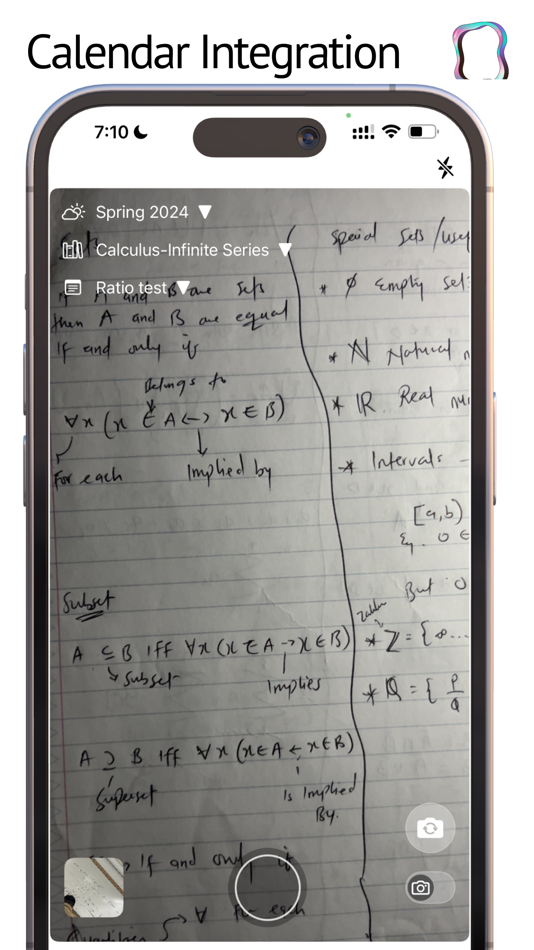 Calendar Integration
7:10
Spring 2024
Calculus-Infinite Series
Ratio test
If A and B are sets
then A and B are equal
If and only if
Belongs to
∀x (x ∈ A ↔ x ∈ B)
For each
Implied by
Subset
A ⊆ B iff ∀x (x ∈ A → x ∈ B)
Subset
Implies
A ⊇ B iff ∀x (x ∈ A ← x ∈ B)
Superset
Is Implied
By.
If and only if
∀ For each
Special sets/
* ∅ Empty set
* ℕ Natural
* ℝ Real
* Intervals -
[a,b)
Eg. 0 ∈
But 0
* ℤ = {∞...
* ℚ = { P
Q